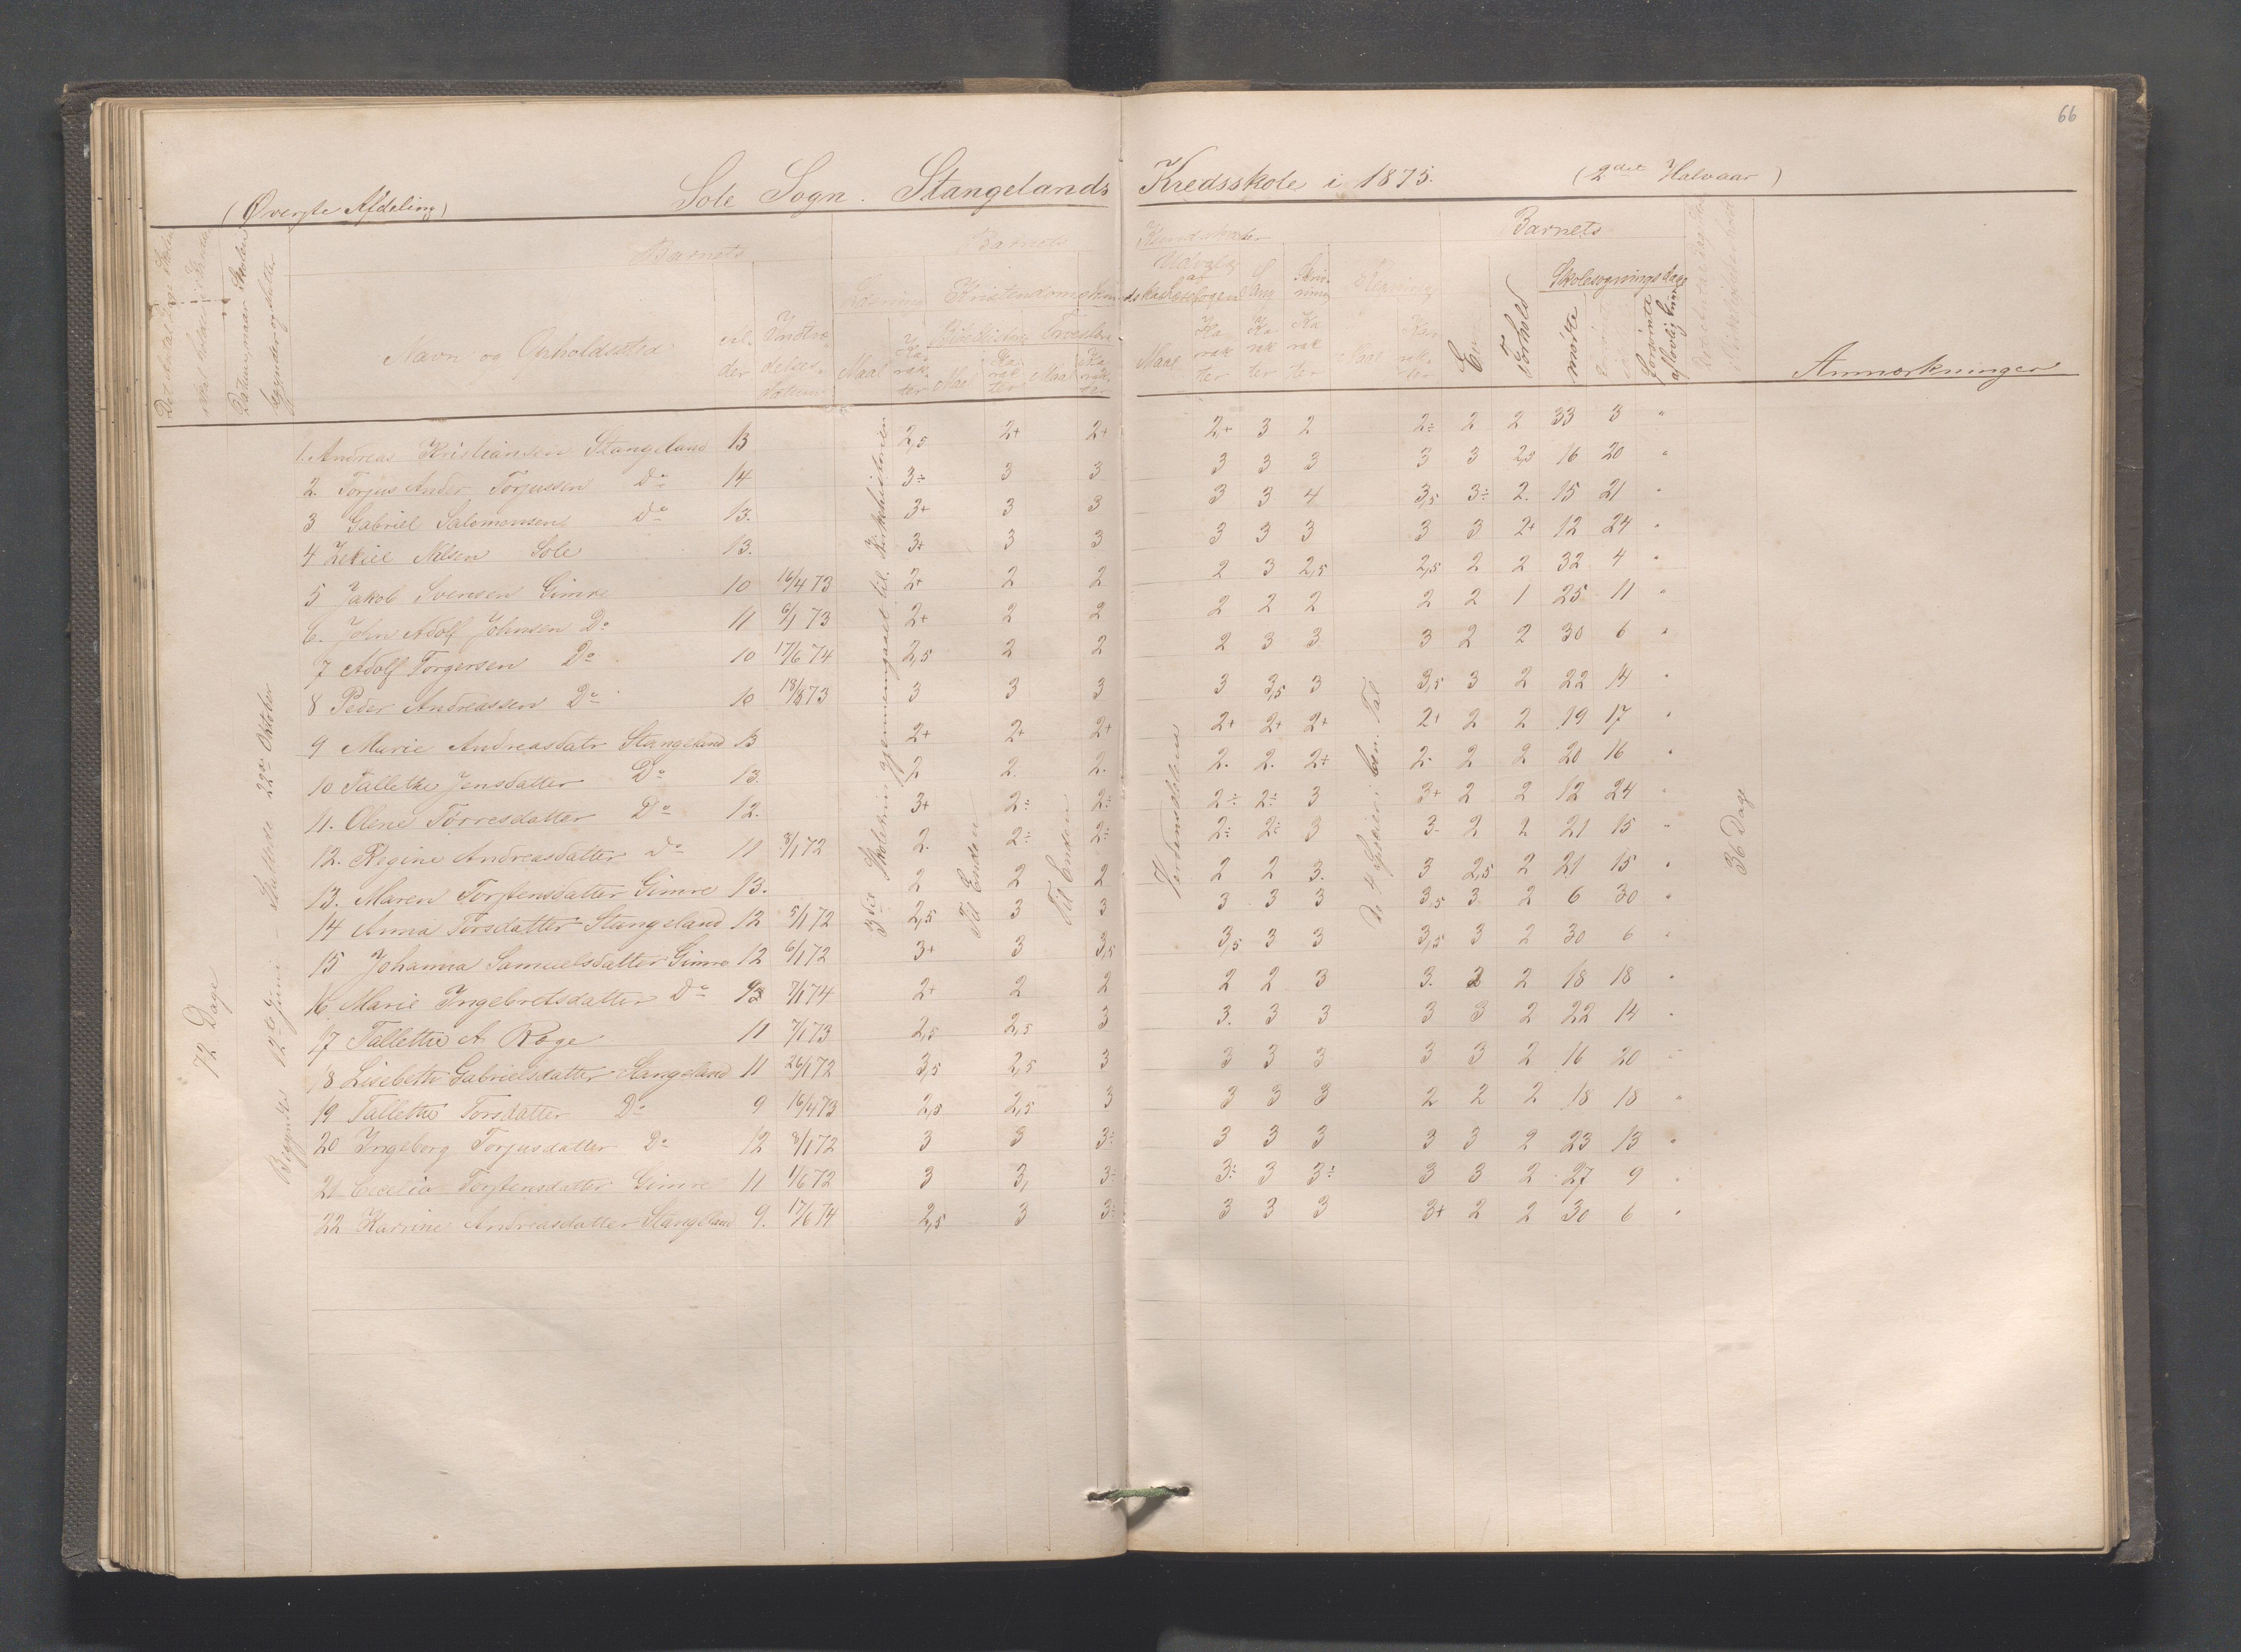 66
(Øverste Afdeling) Sole Sogn. Stangelands Kredsskole i 1875. (2det Halvaar)
Barnets Barnets Kundskaber Barnets
Navn og Opholdssted Alder Indtrædelsesdatum Maal Karakter Maal Karakter Maal Karakter Maal Karakter Karakter Karakter Maal Karakter Forhold Skolesøgningsdage mødte forsømte af lovlig Grund Anmærkninger
72 Dage
Begyndte 12te Juni - Sluttede 22de Oktober
3die Skoletrin gjennemgaaet til Kirkehistorien
Til Enden
Til Enden
Verdensdelene
De 4 Spesier i ben. Tal
36 Dage
1. Andreas Kristiansen Stangeland 13 2,5 2+ 2+ 2+ 3 2 2÷ 2 2 33 3 "
2. Torjus Ander Torjussen Do 14 3÷ 3 3 3 3 3 3 3 2,5 16 20 "
3 Gabriel Salomonsen Do 13. 3+ 3 3 3 3 4 3,5 3÷ 2. 15 21 "
4 Zekiel Nilsen Sole 13. 3+ 3 3 3 3 3 3 3 2+ 12 24 "
5 Jakob Svensen Gimre 10 16/4 73 2+ 2 2 2 3 2,5 2,5 2 2 32 4 "
6. John Adolf Johnsen Do 11 6/1 73 2+ 2 2 2 2 2 2 2 1 25 11 "
7 Adolf Torgersen Do 10 17/6 74 2,5 2 2 2 3 3 3 2 2 30 6 "
8 Peder Andreassen Do 10 18/8 73 3 3 3 3 3,5 3 3,5 3 2 22 14 "
9 Marie Andreasdatr Stangeland 13 2+ 2+ 2+ 2+ 2+ 2+ 2+ 2 2 19 17 "
10 Tallethe Jensdatter Do 13. 2 2. 2. 2. 2. 2÷ 2. 2 2 20 16 "
11. Olene Torresdatter Do 12. 3+ 2÷ 2÷ 2÷ 2÷ 3 3+ 2 2 12 24 "
12. Regine Andreasdatter Do 11 8/1 72 2. 2÷ 2÷ 2÷ 2÷ 3 3- 2 2 21 15 "
13. Maren Torstensdatter Gimre 13. 2 2 2 2 2 3. 3 2,5 2 21 15 "
14 Anna Torsdatter Stangeland 12 5/1 72 2,5 3 3 3 3 3 3,5 3. 2 6 30 "
15 Johanna Samuelsdatter Gimre 12 6/1 72 3+ 3 3,5 3,5 3 3 3,5 3 2 30 6 "
16. Marie Ingebretsdatter Do 7/1 74 2+ 2 2 2 2 3 3. 2 2 18 18 "
17 Tallethe A Røge 11 7/1 73 2,5 2,5 3 3. 3 3 3 3 2 22 14 "
18 Lisebeth Gabrielsdatter Stangeland 11 26/1 72 3,5 2,5 3 3 3 3 3 3 2 16 20 "
19 Tallethe Torsdatter Do 9 16/4 73 2,5 2,5 3 3 3 3 2 2 2 18 18 "
20 Ingeborg Torjusdatter Do 12 8/1 72 3 3 3÷ 3 3 3 3 3 2 23 13 "
21 Cecelia Torstensdatter Gimre 11 1/6 72 3 3, 3÷ 3÷ 3 3÷ 3 3 2 27 9 "
22 Karrine Andreasdatter Stangeland 9. 17/6 74 2,5 3 3÷ 3 3 3 3+ 2 2 30 6 "